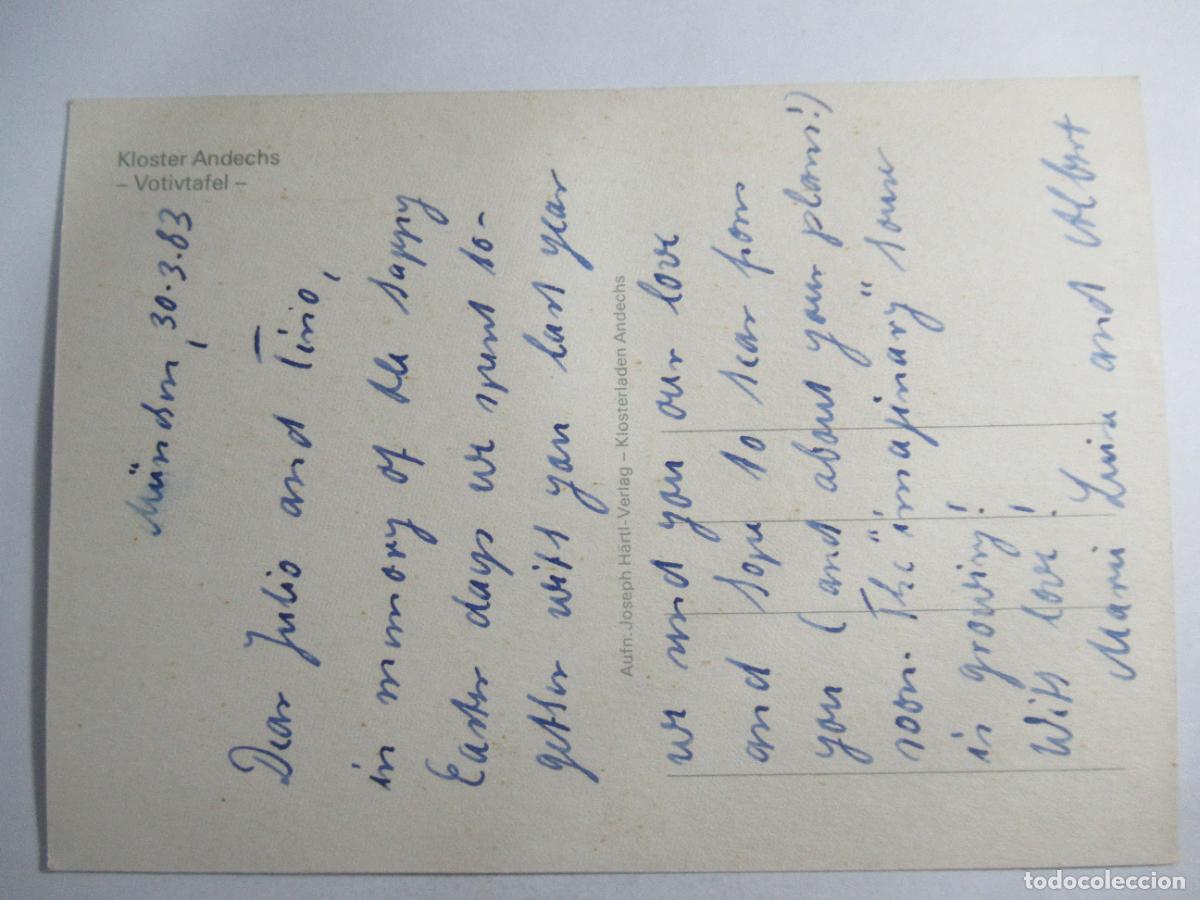 Kloster Andechs
– Votivtafel –
München, 30.3.83
Dear Julio and Tinio,
in memory of the happy
Easter days we spent to-
gether with you last year
Aufn. Joseph Härtl-Verlag – Klosterladen Andechs
we send you our love
and hope to hear from
you (and about your plans!)
soon. The "imaginary" tour
is growing!
With love!
Marie Luise and Albert
todocoleccion